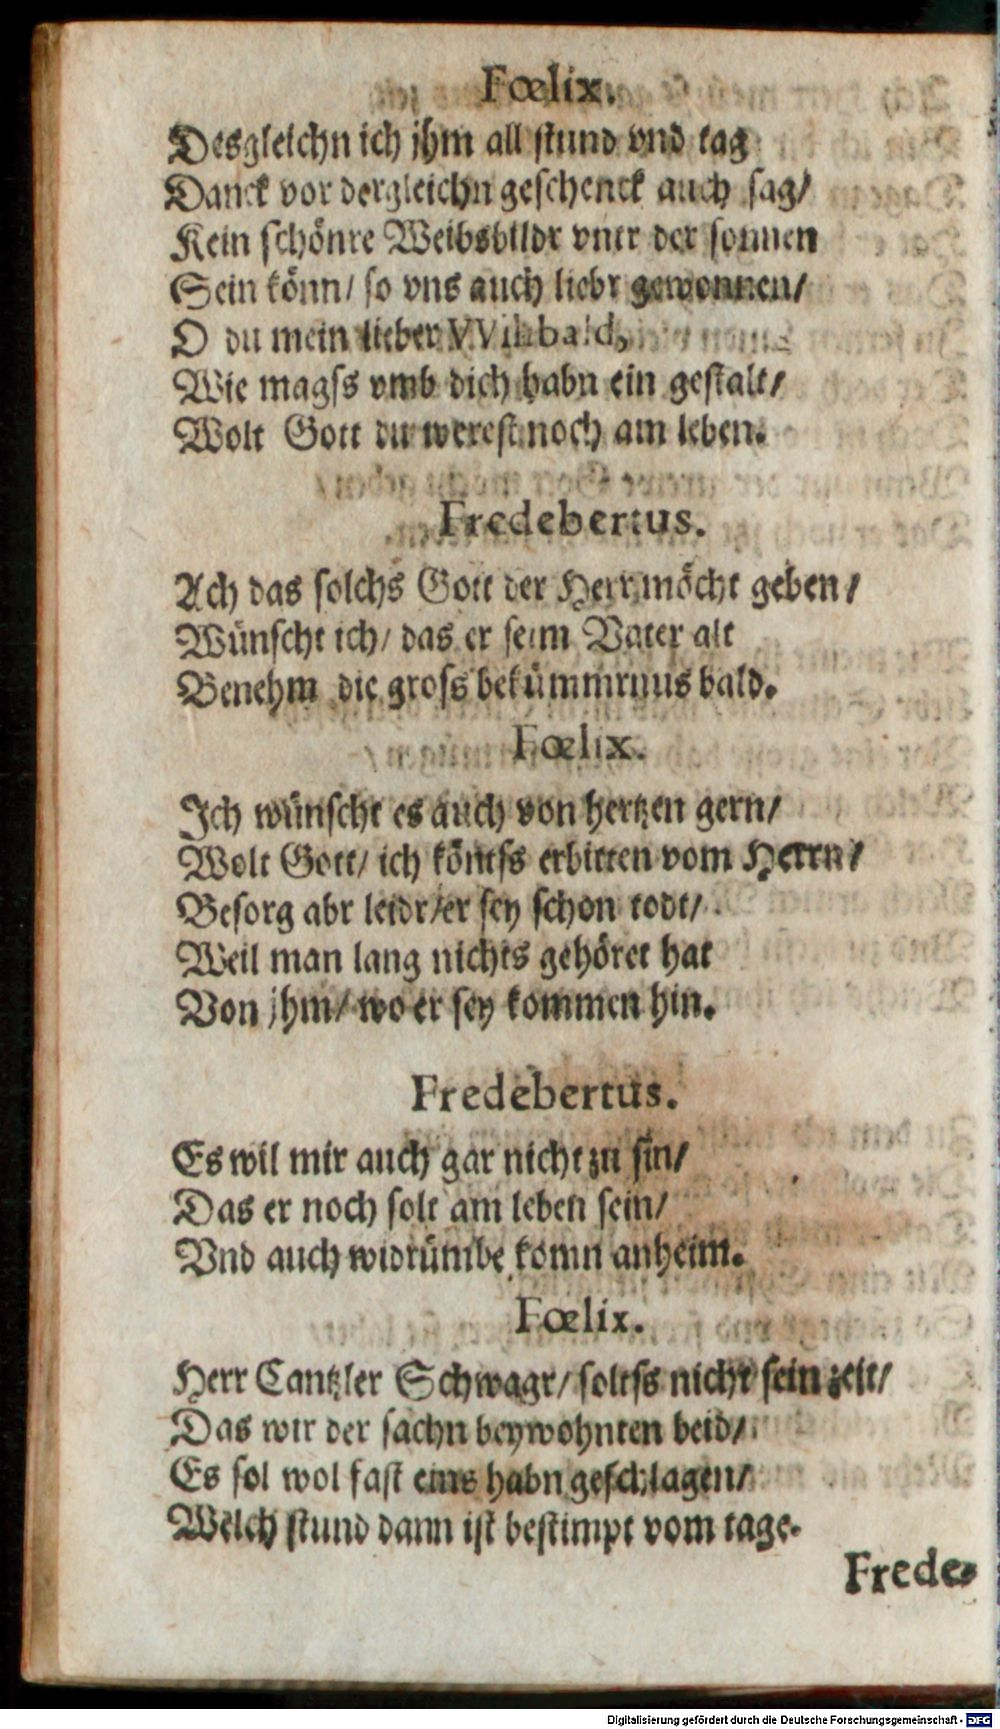 Fœlix.
Desgleichn ich jhm all stund vnd tag
Danck vor dergleichn geschenck auch sag/
Kein schönre Weibsbildr vntr der sonnen
Sein könn/ so vns auch liebr gewonnen/
O du mein lieber VVilibald,
Wie magss vmb dich habn ein gestalt/
Wolt Gott du werest noch am leben.
Fredebertus.
Ach das solchs Gott der Herr möcht geben/
Wünscht ich/ das er seim Vater alt
Benehm die gross bekümmrnus bald.
Fœlix.
Ich wünscht es auch von hertzen gern/
Wolt Gott/ ich köntss erbitten vom Herrn/
Besorg abr leidr/er sey schon todt/
Weil man lang nichts gehöret hat
Von jhm/ wo er sey kommen hin.
Fredebertus.
Es wil mir auch gar nicht zu sin/
Das er noch solt am leben sein/
Vnd auch widrümbe komn anheim.
Fœlix.
Herr Cantzler Schwagr/ soltss nicht sein zeit/
Das wir der sachn beywohnten beid/
Es sol wol fast eins habn geschlagen/
Welch stund dann ist bestimpt vom tage.
Frede-
Digitalisierung gefördert durch die Deutsche Forschungsgemeinschaft - DFG